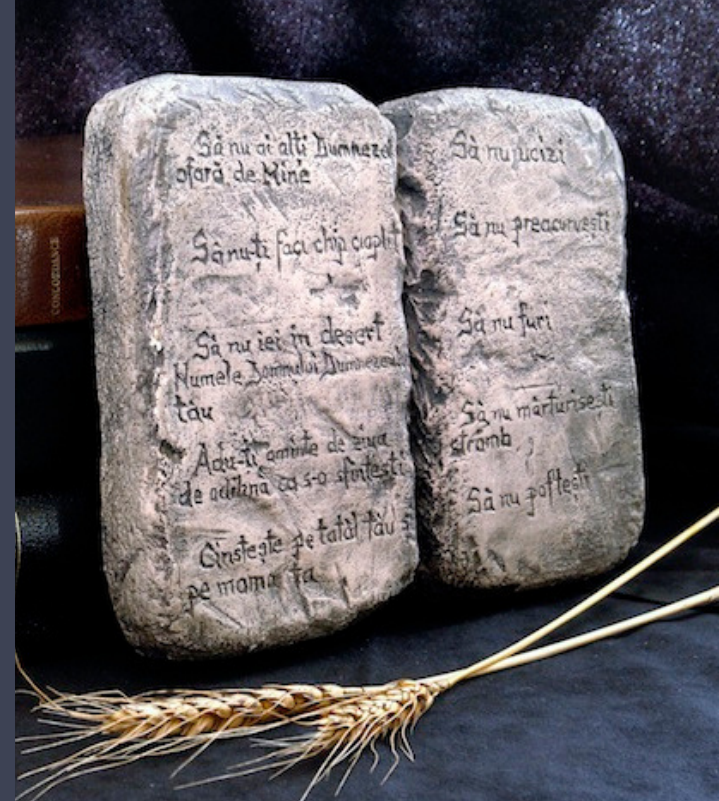 Să nu ai alți Dumnezei
afară de Mine
Să nu-ți faci chip cioplit
Să nu iei în deșert
Numele Domnului Dumnezeului
tău
Adu-ți aminte de ziua
de odihnă ca s-o sfințești
Cinstește pe tatăl tău ș
pe mama ta
Să nu ucizi
Să nu preacurvești
Să nu furi
Să nu mărturisești
strâmb
Să nu poftești
CONCORDANCE